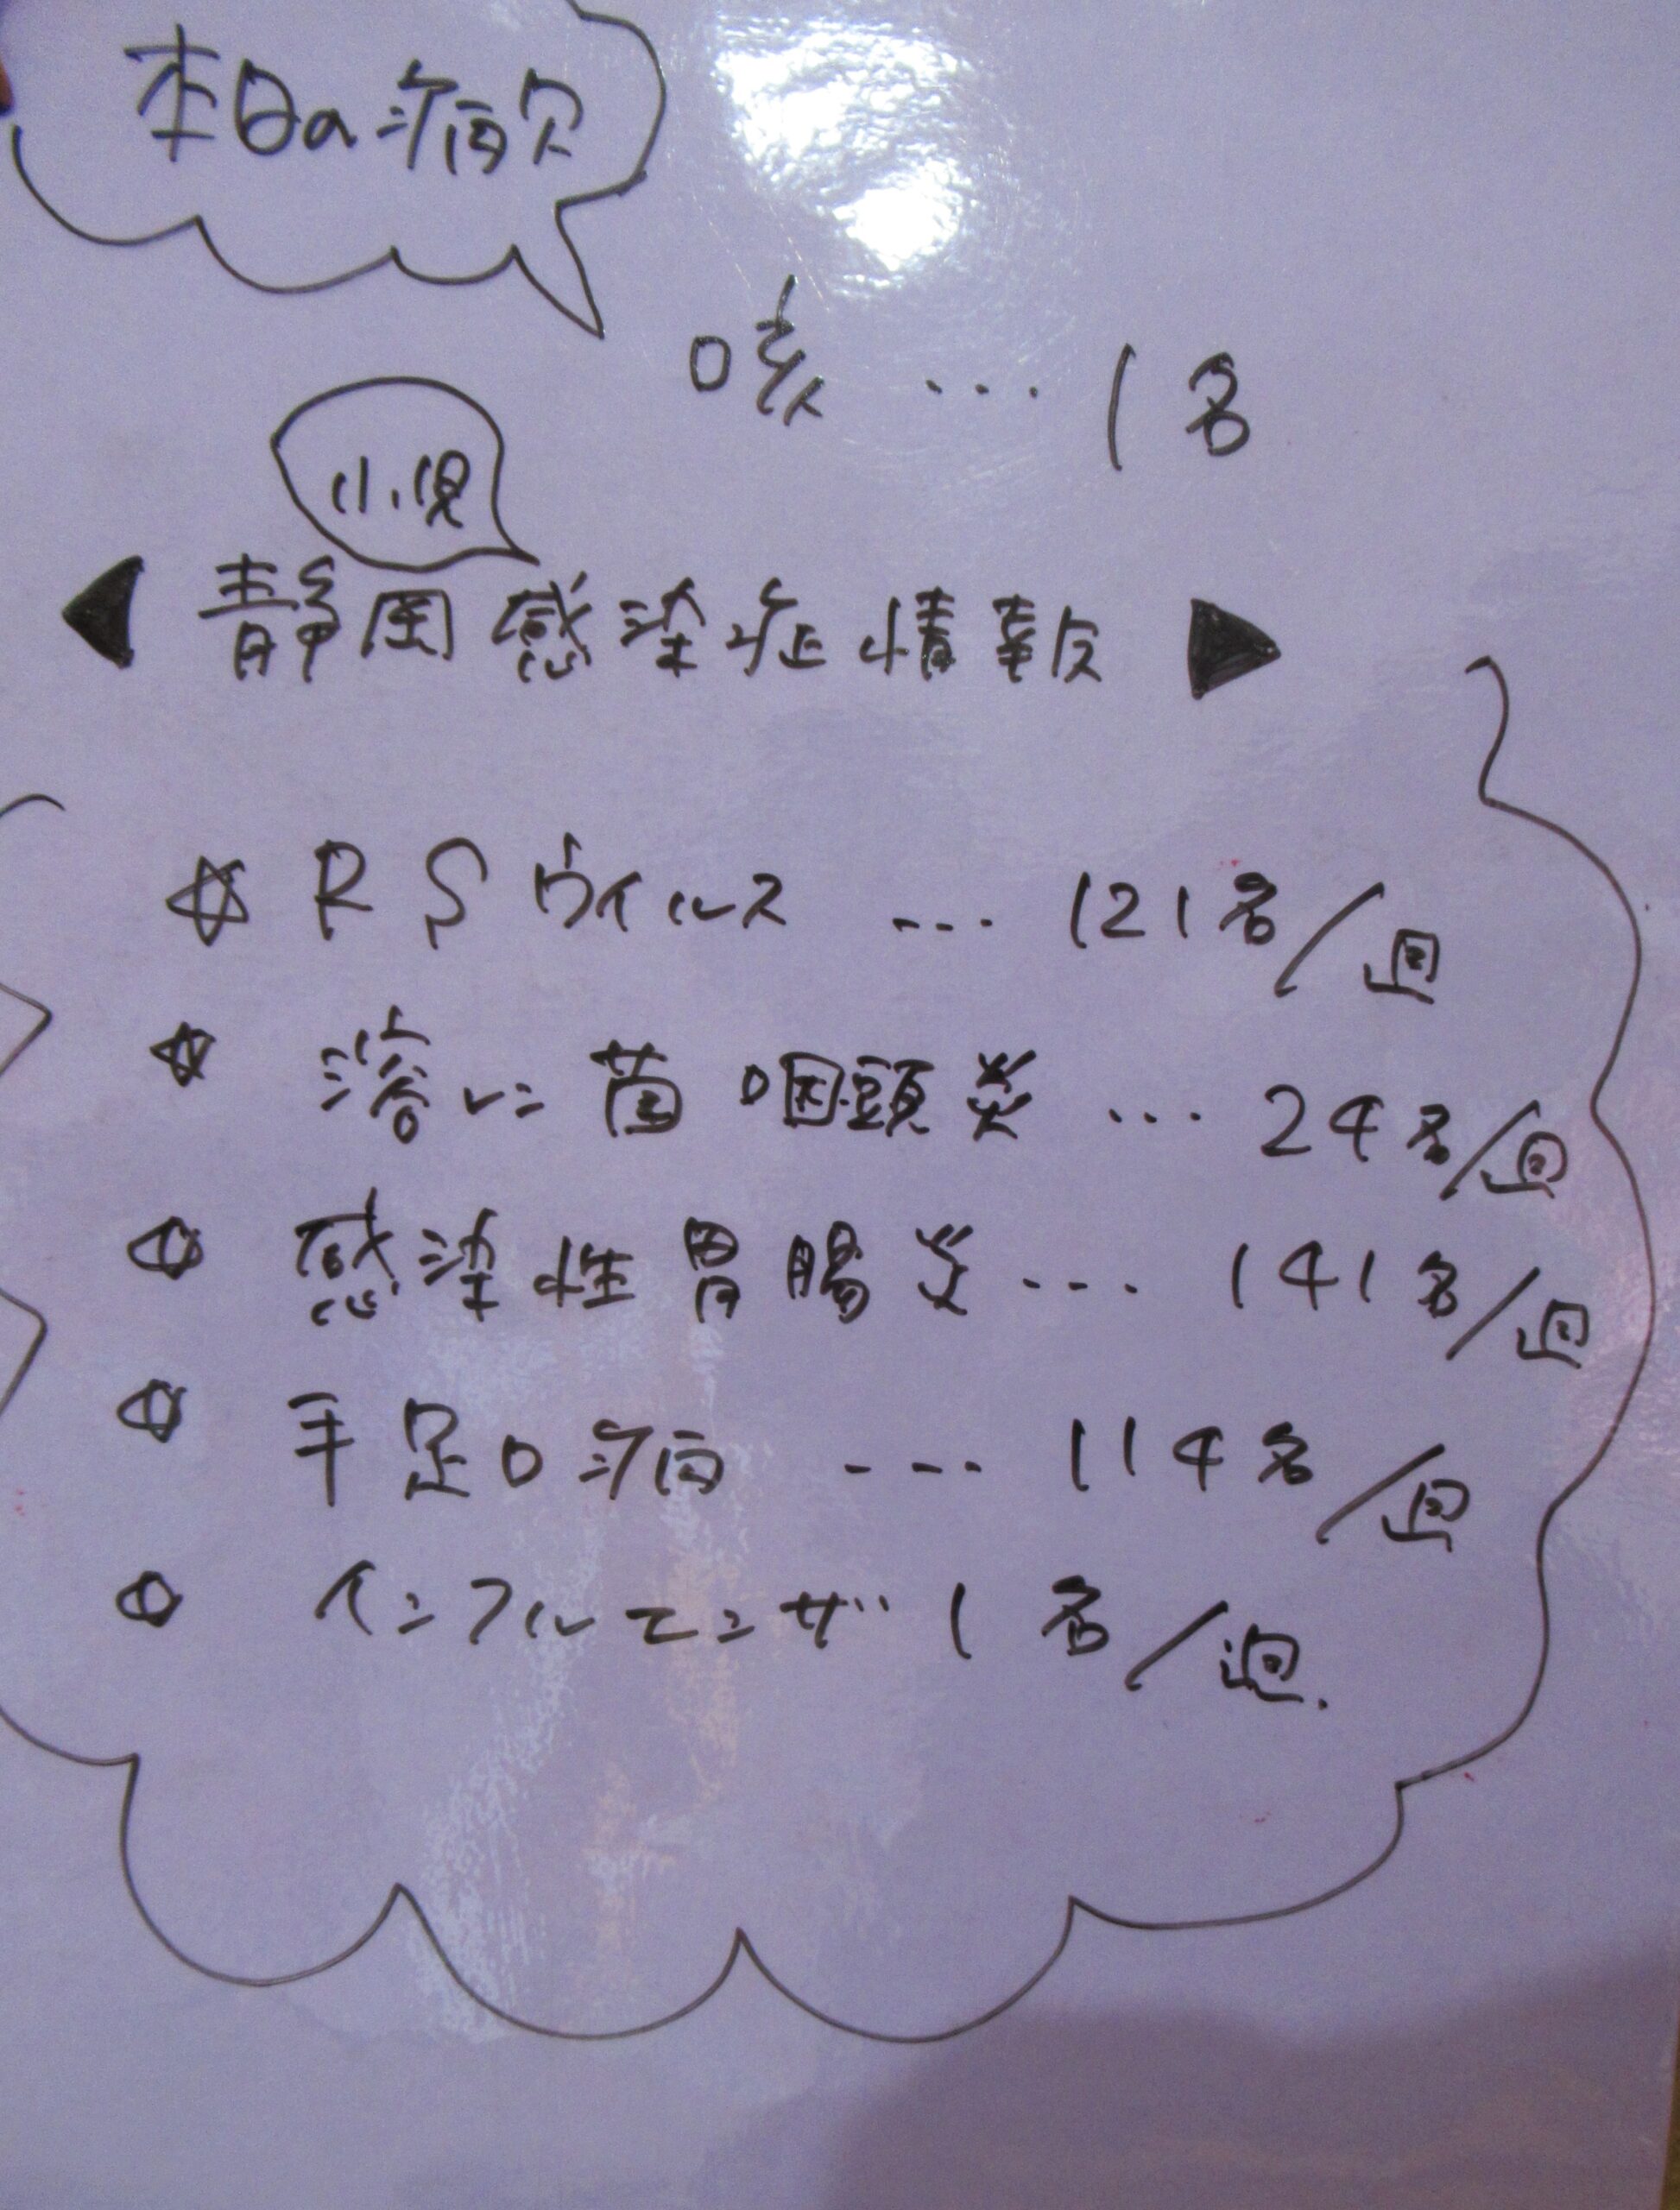 本日の病欠
咳 … 1名
小児
◀ 静岡感染症情報 ▶
☆ RSウイルス … 121名/週
☆ 溶レン菌咽頭炎 … 24名/週
☆ 感染性胃腸炎 … 141名/週
☆ 手足口病 … 114名/週
☆ インフルエンザ 1名/週.